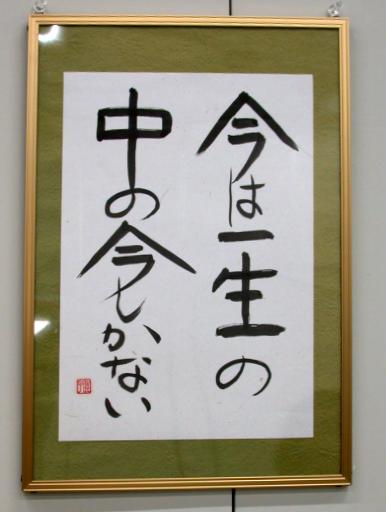 今は一生の
中の今しかない